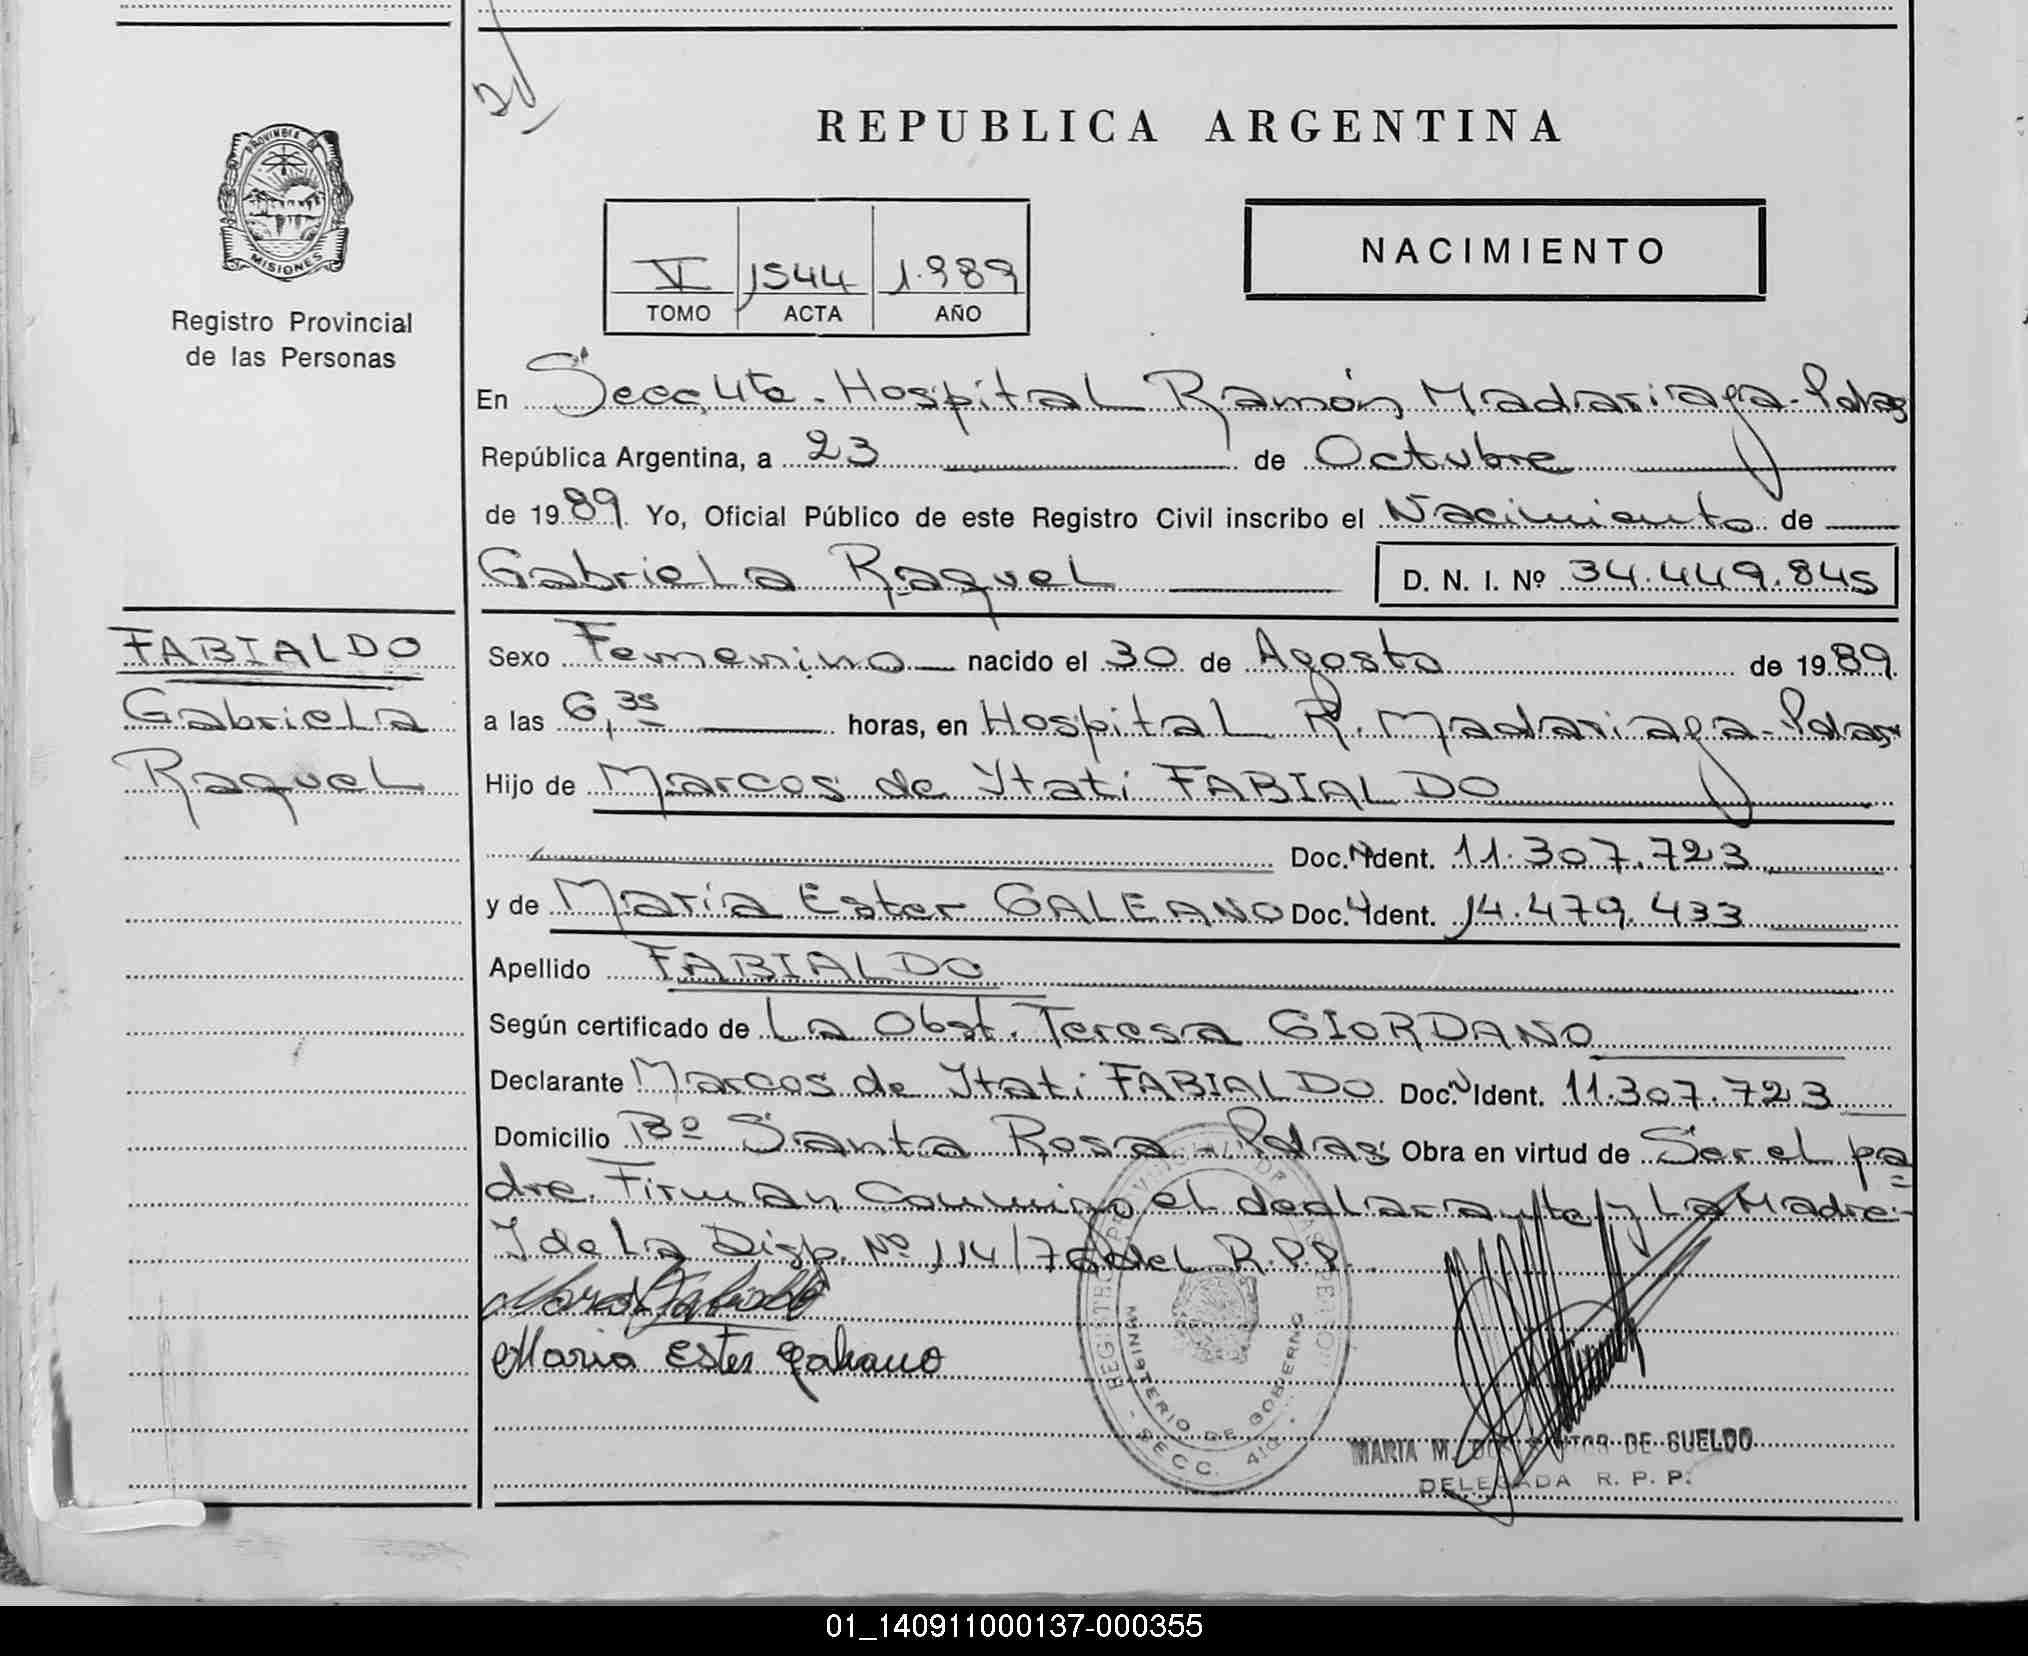 REPUBLICA ARGENTINA
PROVINCIA DE
MISIONES
Registro Provincial
de las Personas
V 1544 1.989
TOMO ACTA AÑO
NACIMIENTO
En Secc. 4ta. Hospital Ramón Madariaga - Pdas
República Argentina, a 23 de Octubre
de 1989. Yo, Oficial Público de este Registro Civil inscribo el Nacimiento de
Gabriela Raquel D. N. I. Nº 34.449.845
FABIALDO
Gabriela
Raquel
Sexo Femenino nacido el 30 de Agosto de 1989.
a las 6,35 horas, en Hospital R. Madariaga - Pdas
Hijo de Marcos de Itatí FABIALDO
Doc. Ident. 11.307.723
y de María Ester GALEANO Doc. Ident. 14.479.433
Apellido FABIALDO
Según certificado de La Obst. Teresa GIORDANO
Declarante Marcos de Itatí FABIALDO Doc. Ident. 11.307.723
Domicilio Bº Santa Rosa - Pdas Obra en virtud de Ser el pa
dre. Firman Conmigo el declarante y La Madre -
I de La Disp. Nº 114/76 del R.P.P.
Maria Ester Galeano
REGISTRO PROVINCIAL DE LAS PERSONAS
MINISTERIO DE GOBIERNO
- SECC. 4ta. -
MARIA M. DOS SANTOS DE SUELDO
DELEGADA R. P. P.
01_140911000137-000355